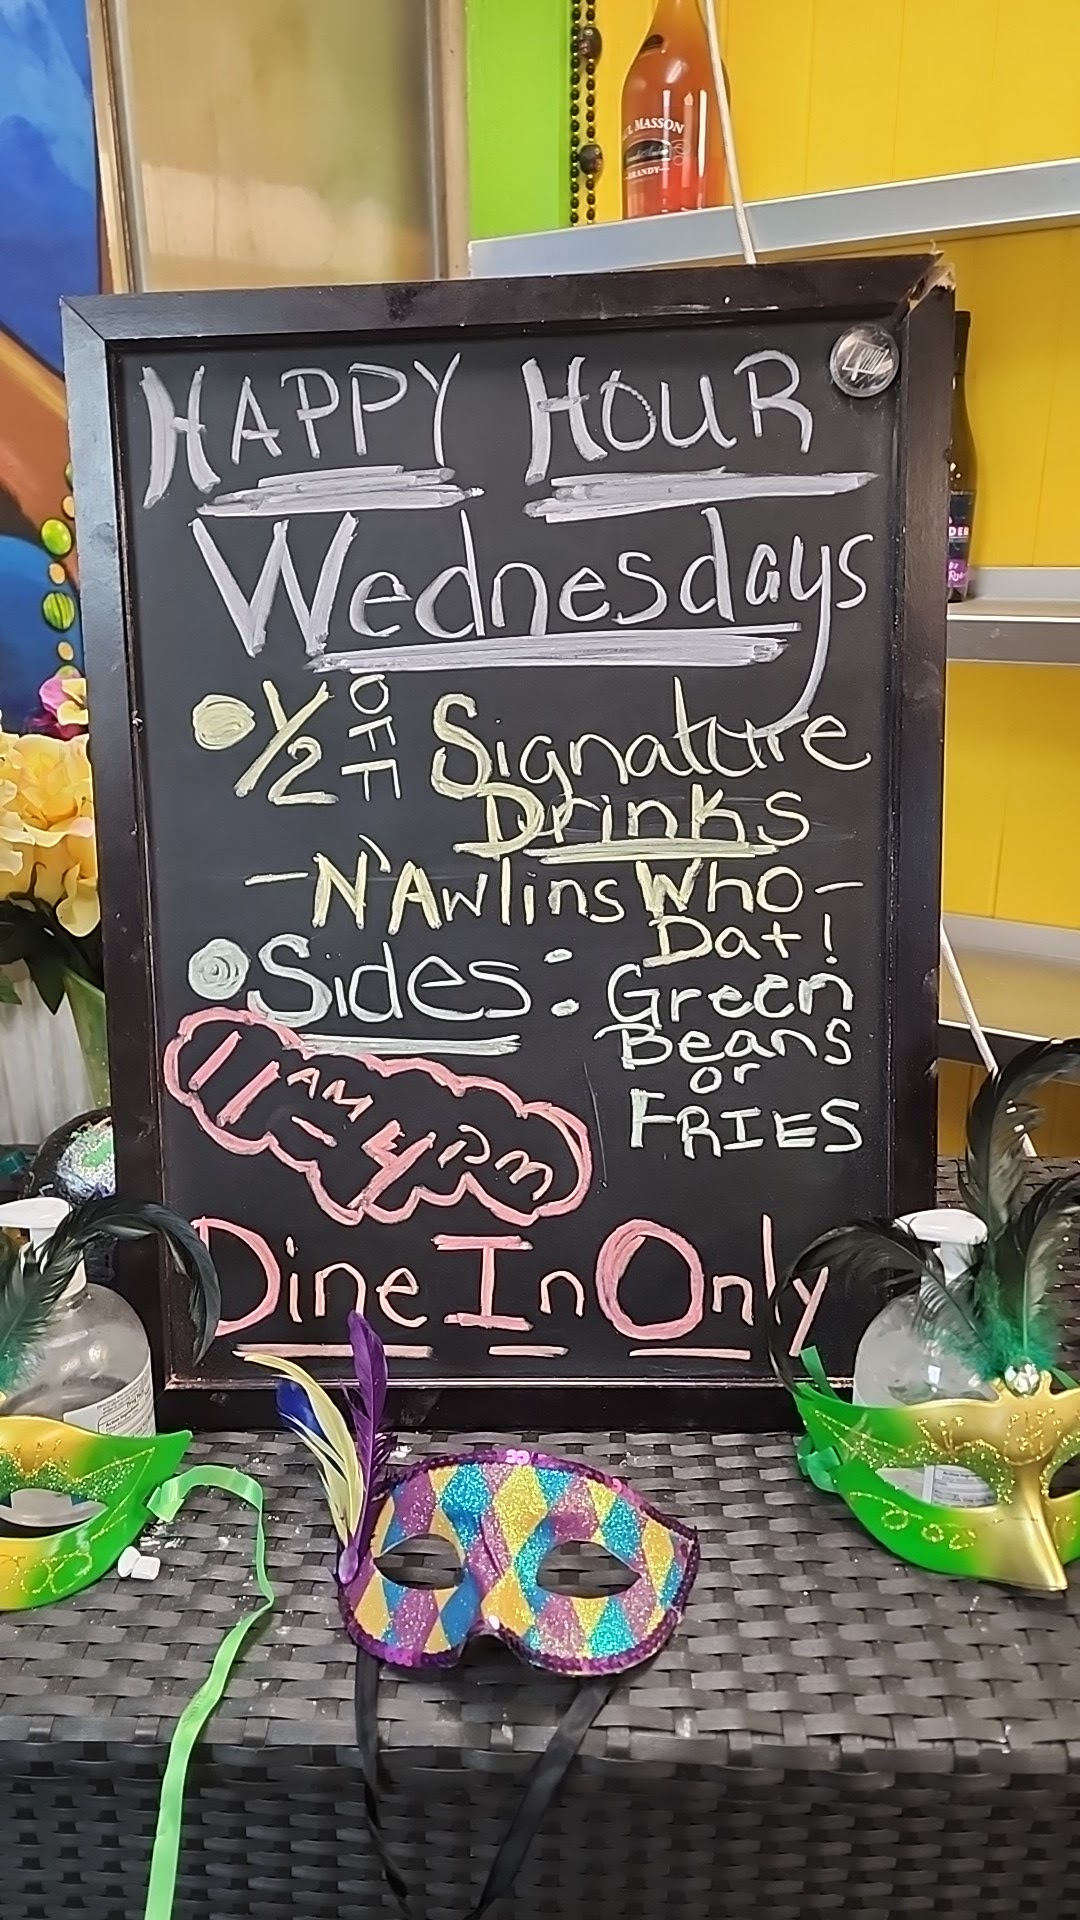 MASSON
BRANDY
HAPPY HOUR
Wednesdays
1/2 OFF Signature
Drinks
-N'Awlins Who-
Dat!
Sides: Green
Beans
or
FRIES
11AM-4pm
Dine In Only